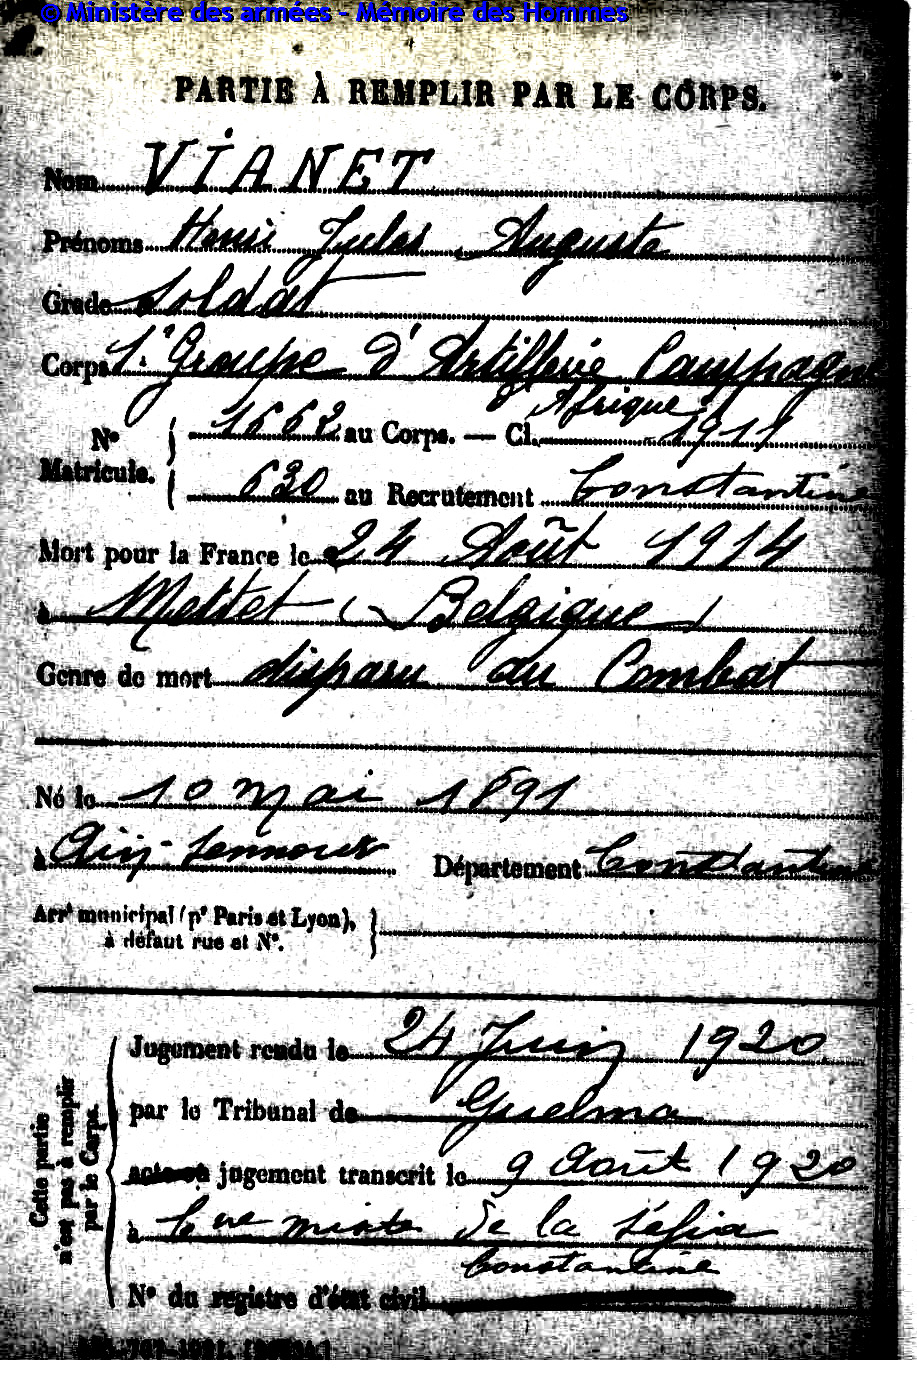 © Ministère des armées - Mémoire des Hommes
PARTIE À REMPLIR PAR LE CORPS.
Nom VIANET
Prénoms Henri Jules Auguste
Grade Soldat
Corps 1er Groupe d'Artillerie Campagne
Afrique
N° Matricule. 1662 au Corps. — Cl. 1911
630 au Recrutement Constantine
Mort pour la France le 24 Août 1914
à Mettet (Belgique)
Genre de mort disparu au Combat
Né le 10 mai 1891
à Département Constantine
Arrt municipal (pr Paris et Lyon),
à défaut rue et N°.
Cette partie n'est pas à remplir par le Corps.
Jugement rendu le 24 Juin 1920
par le Tribunal de Guelma
acte ou jugement transcrit le 9 Août 1920
à Cne mixte de la Séfia
Constantine
N° du registre d'état civil